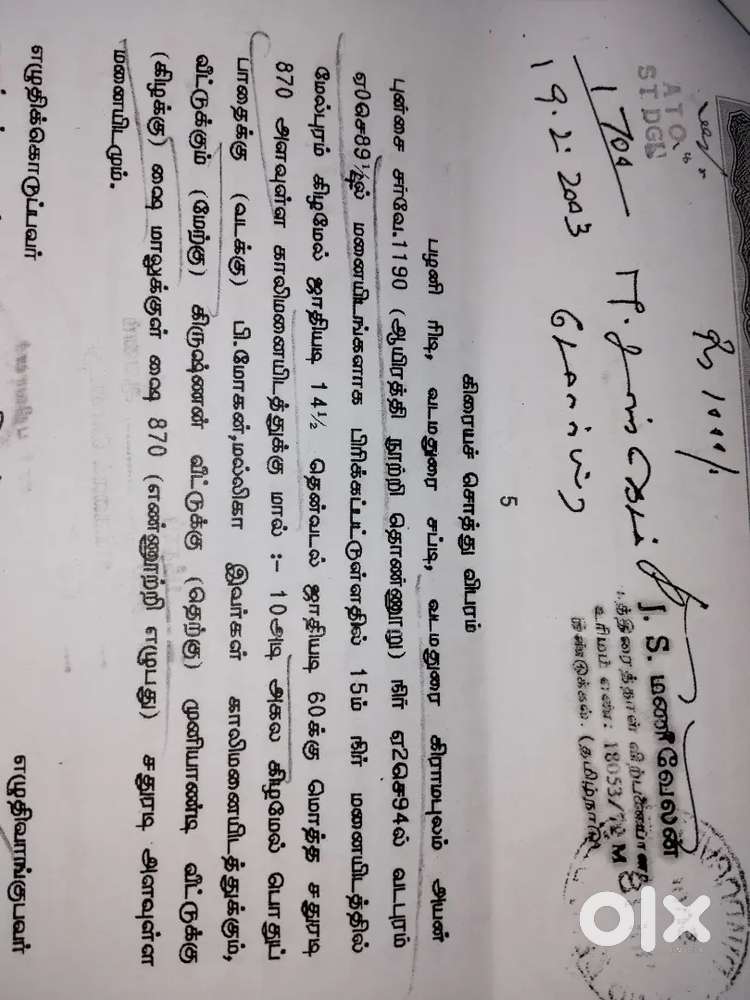 ரூ 1000/-
1704
19.2.2003
J. S. மணிவேலன்
முத்திரைத்தாள் விற்பனையாளர்
உரிமம் எண்: 18053/
திண்டுக்கல். (தமிழ்நாடு)
5
கிரையச் சொத்து விபரம்
பழனி ரிடி, வடமதுரை சப்டி, வடமதுரை கிராமபுலம் அயன்
புன்சை சர்வே.1190 (ஆயிரத்தி நூற்றி தொண்ணூறு) நிர் ஏ2செ94ல் வடபுரம்
ஏ0செ89½ல் மனையிடங்களாக பிரிக்கப்பட்டுள்ளதில் 15ம் நிர் மனையிடத்தில்
மேல்புரம் கிழமேல் ஜாதியடி 14½ தென்வடல் ஜாதியடி 60க்கு மொத்த சதுரடி
870 அளவுள்ள காலிமனையிடத்துக்கு மால் :- 10அடி அகல கிழமேல் பொதுப்
பாதைக்கு (வடக்கு) பி.மோகன்,மல்லிகா இவர்கள் காலிமனையிடத்துக்கும்,
வீட்டுக்கும் (மேற்கு) கிருஷ்ணன் வீட்டுக்கு (தெற்கு) முனியாண்டி வீட்டுக்கு
(கிழக்கு) ஷை மாலுக்குள் ஷை 870 (எண்ணூற்றி எழுபது) சதுரடி அளவுள்ள
மனையிடமும்.
எழுதிக்கொடுப்பவர் எழுதிவாங்குபவர்
olx